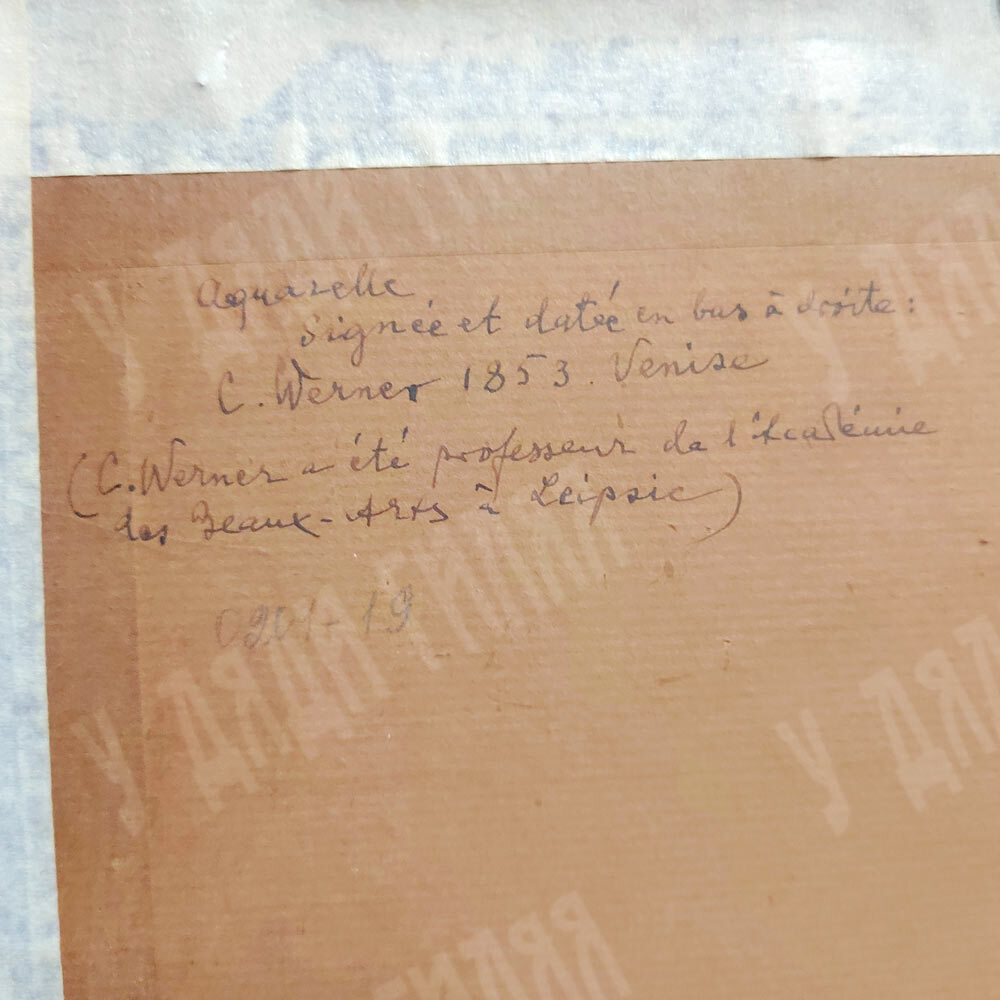 Aquarelle
signée et datée en bas à droite:
C. Werner 1853. Venise
(C. Werner a été professeur de l'Académie
des Beaux-Arts à Leipsic)
0201-19
У ДЯДИ ГИЛЯЯ